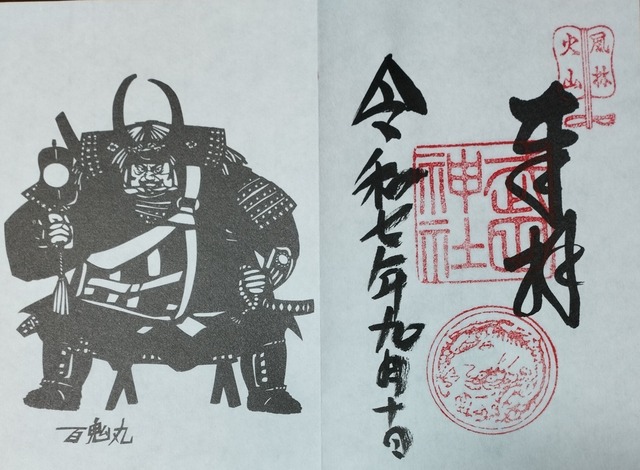 風林
火山
奉拝
武田
神社
令和七年九月十日
百鬼丸